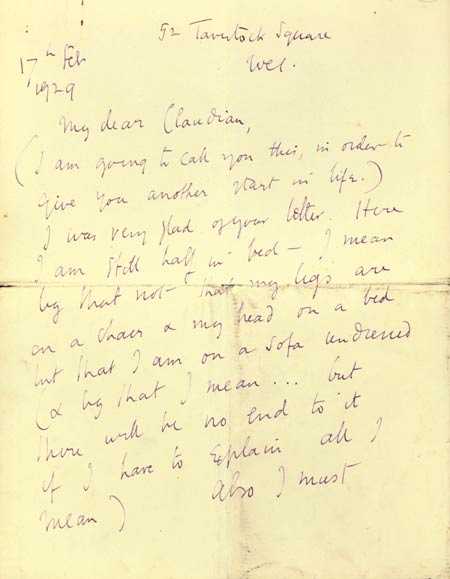 52 Tavistock Square
WC1.
17th Feb
1929
My dear Claudian,
(I am going to call you this, in order to
give you another start in life.)
I was very glad of your letter. Here
I am still half in bed - I mean
by that not that my legs are
on a chair & my head on a bed
but that I am on a sofa undressed
(& by that I mean ... but
there will be no end to it
if I have to explain all I
mean) Also I must